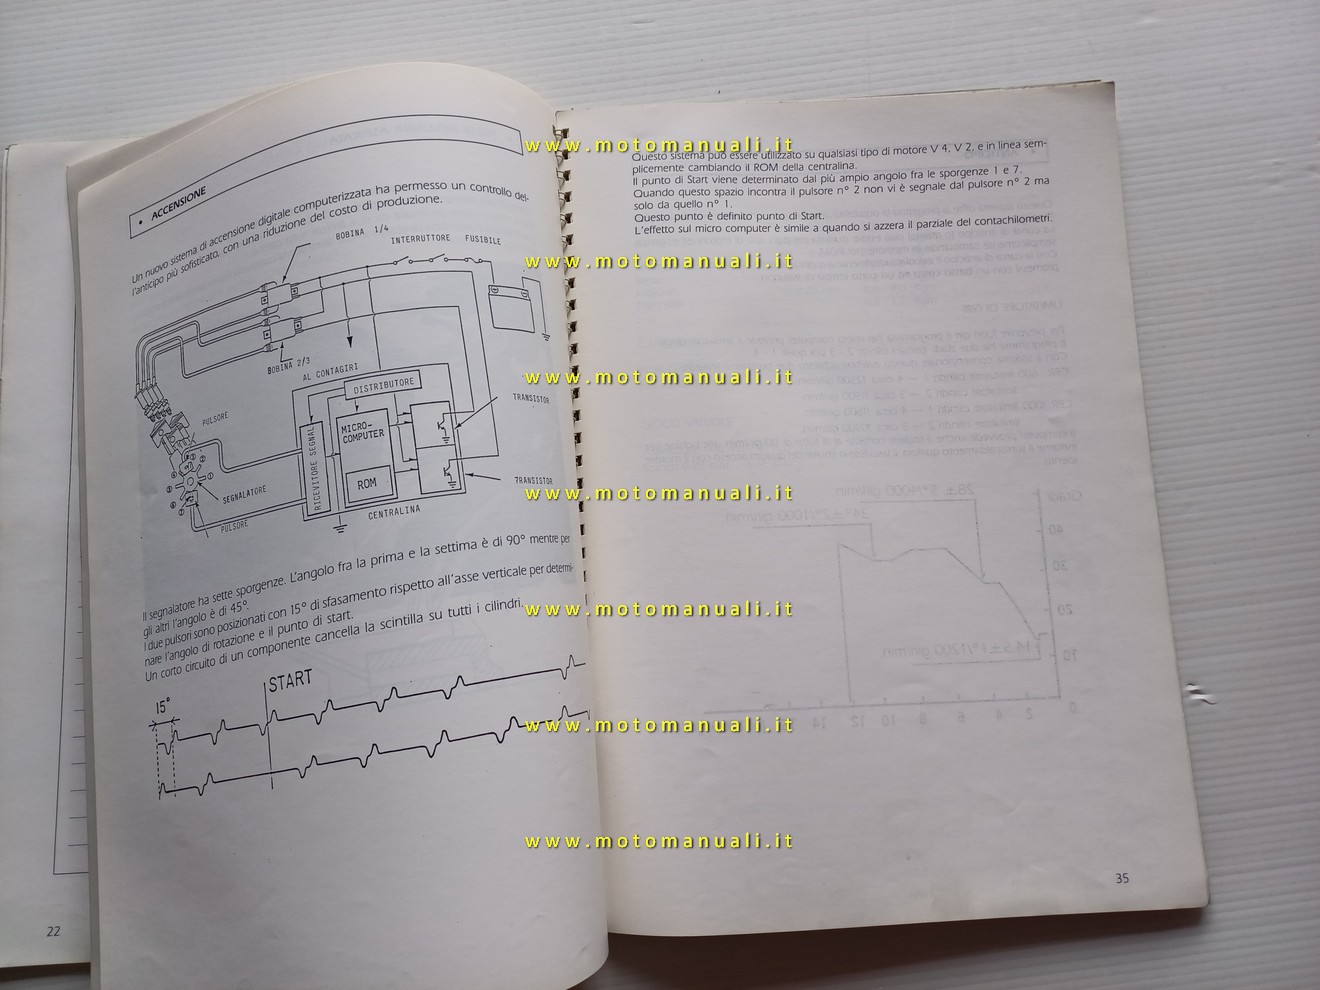 • ACCENSIONE
Un nuovo sistema di accensione digitale computerizzata ha permesso un controllo del-
l'anticipo più sofisticato, con una riduzione del costo di produzione.
BOBINA 1/4
INTERRUTTORE FUSIBILE
BOBINA 2/3
AL CONTAGIRI
DISTRIBUTORE
TRANSISTOR
PULSORE
MICRO-
COMPUTER
RICEVITORE SEGNAL
ROM
SEGNALATORE
TRANSISTOR
CENTRALINA
PULSORE
Il segnalatore ha sette sporgenze. L'angolo fra la prima e la settima è di 90° mentre per
gli altri l'angolo è di 45°.
I due pulsori sono posizionati con 15° di sfasamento rispetto all'asse verticale per determi-
nare l'angolo di rotazione e il punto di start.
Un corto circuito di un componente cancella la scintilla su tutti i cilindri.
START
15°
22
Questo sistema può essere utilizzato su qualsiasi tipo di motore V 4, V 2, e in linea sem-
plicemente cambiando il ROM della centralina.
Il punto di Start viene determinato dal più ampio angolo fra le sporgenze 1 e 7.
Quando questo spazio incontra il pulsore n° 2 non vi è segnale dal pulsore n° 2 ma
solo da quello n° 1.
Questo punto è definito punto di Start.
L'effetto sul micro computer è simile a quando si azzera il parziale del contachilometri.
35
www.motomanuali.it
www.motomanuali.it
www.motomanuali.it
www.motomanuali.it
www.motomanuali.it
www.motomanuali.it
www.motomanuali.it